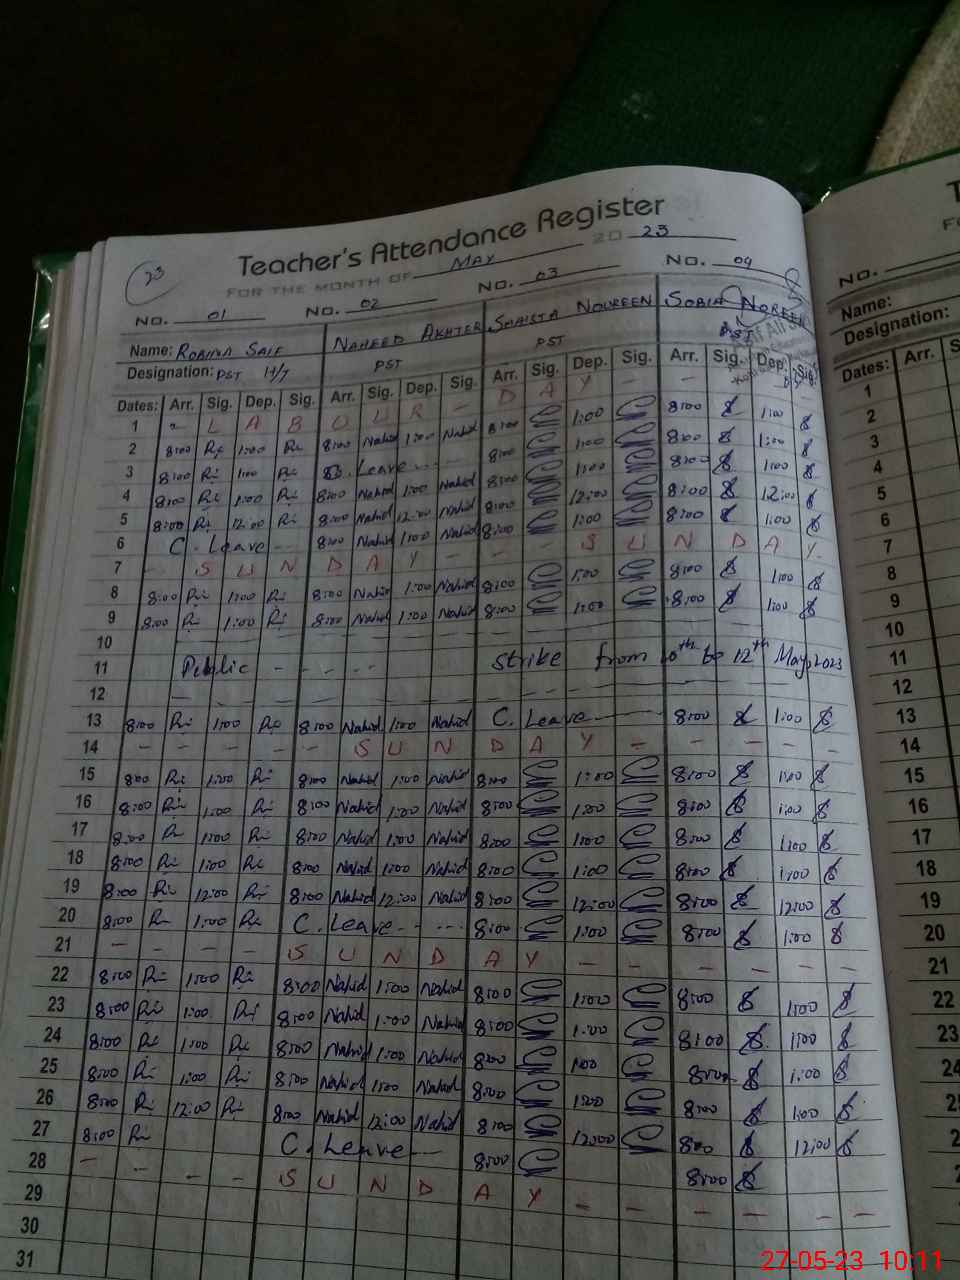 23
Teacher's Attendance Register
FOR THE MONTH OF MAY 20 23
NO. 01 NO. 02 NO. 03 NO. 04
Name: ROBINA SAIF NAHEED AKHTER SHAISTA NOUREEN SOBIA NOREEN
Designation: PST H/T PST PST PST
Dates: Arr. Sig. Dep. Sig. Arr. Sig. Dep. Sig. Arr. Sig. Dep. Sig. Arr. Sig. Dep. Sig.
1 - L A B O U R - D A Y - -
2 8:00 Ri 1:00 Ri 8:00 Nahid 1:00 Nahid 8:00 1:00 8:00 1:00
3 8:00 Ri 1:00 Ri C. Leave 8:00 1:00 8:00 1:00
4 8:00 Ri 1:00 Ri 8:00 Nahid 1:00 Nahid 8:00 1:00 8:00 1:00
5 8:00 Ri 12:00 Ri 8:00 Nahid 12:00 Nahid 8:00 12:00 8:00 12:00
6 C. Leave 8:00 Nahid 1:00 Nahid 8:00 1:00 8:00 1:00
7 S U N D A Y - - - S U N D A Y
8 8:00 Ri 1:00 Ri 8:00 Nahid 1:00 Nahid 8:00 1:00 8:00 1:00
9 8:00 Ri 1:00 Ri 8:00 Nahid 1:00 Nahid 8:00 1:00 8:00 1:00
10
11 Public - - - - - Strike from 10th to 12th May, 2023
12
13 8:00 Ri 1:00 Ri 8:00 Nahid 1:00 Nahid C. Leave 8:00 1:00
14 - - - - - S U N D A Y - - - - -
15 8:00 Ri 1:00 Ri 8:00 Nahid 1:00 Nahid 8:00 1:00 8:00 1:00
16 8:00 Ri 1:00 Ri 8:00 Nahid 1:00 Nahid 8:00 1:00 8:00 1:00
17 8:00 Ri 1:00 Ri 8:00 Nahid 1:00 Nahid 8:00 1:00 8:00 1:00
18 8:00 Ri 1:00 Ri 8:00 Nahid 1:00 Nahid 8:00 1:00 8:00 1:00
19 8:00 Ri 12:00 Ri 8:00 Nahid 12:00 Nahid 8:00 12:00 8:00 12:00
20 8:00 Ri 1:00 Ri C. Leave 8:00 1:00 8:00 1:00
21 - - - - S U N D A Y - - - - - -
22 8:00 Ri 1:00 Ri 8:00 Nahid 1:00 Nahid 8:00 1:00 8:00 1:00
23 8:00 Ri 1:00 Ri 8:00 Nahid 1:00 Nahid 8:00 1:00 8:00 1:00
24 8:00 Ri 1:00 Ri 8:00 Nahid 1:00 Nahid 8:00 1:00 8:00 1:00
25 8:00 Ri 1:00 Ri 8:00 Nahid 1:00 Nahid 8:00 1:00 8:00 1:00
26 8:00 Ri 12:00 Ri 8:00 Nahid 12:00 Nahid 8:00 12:00 8:00 12:00
27 8:00 Ri C. Leave 8:00 8:00
28 - - - - S U N D A Y - - - - - -
29
30
31
NO.
Name:
Designation:
Dates: Arr.
1
2
3
4
5
6
7
8
9
10
11
12
13
14
15
16
17
18
19
20
21
22
23
27-05-23 10:11